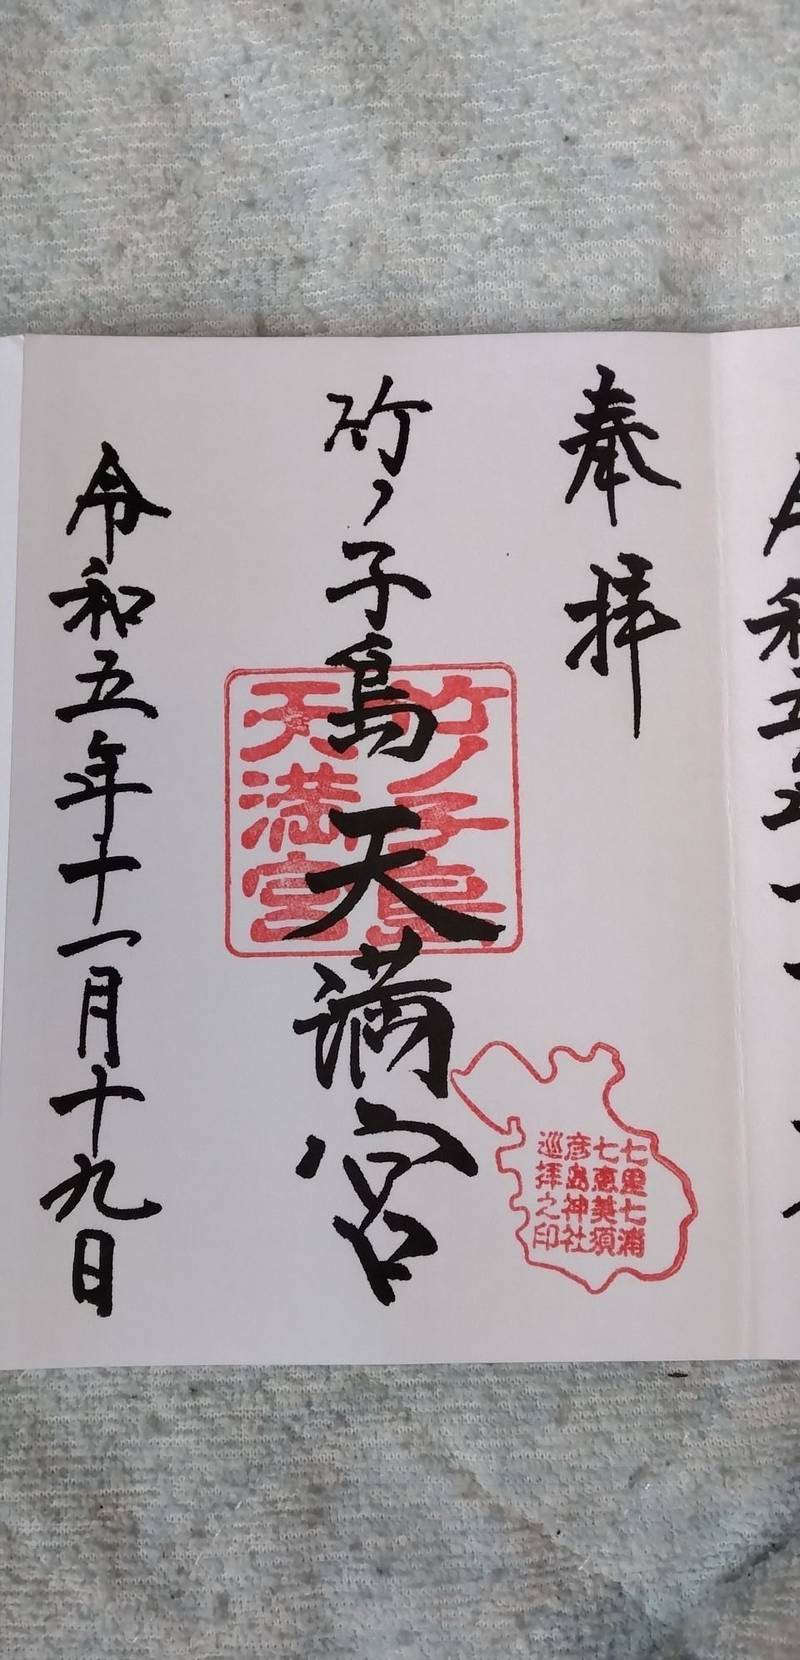 奉拝
竹ノ子島天満宮
令和五年十一月十九日
竹ノ子島
天満宮
七里七浦
七恵美須
彦島神社
巡拝之印